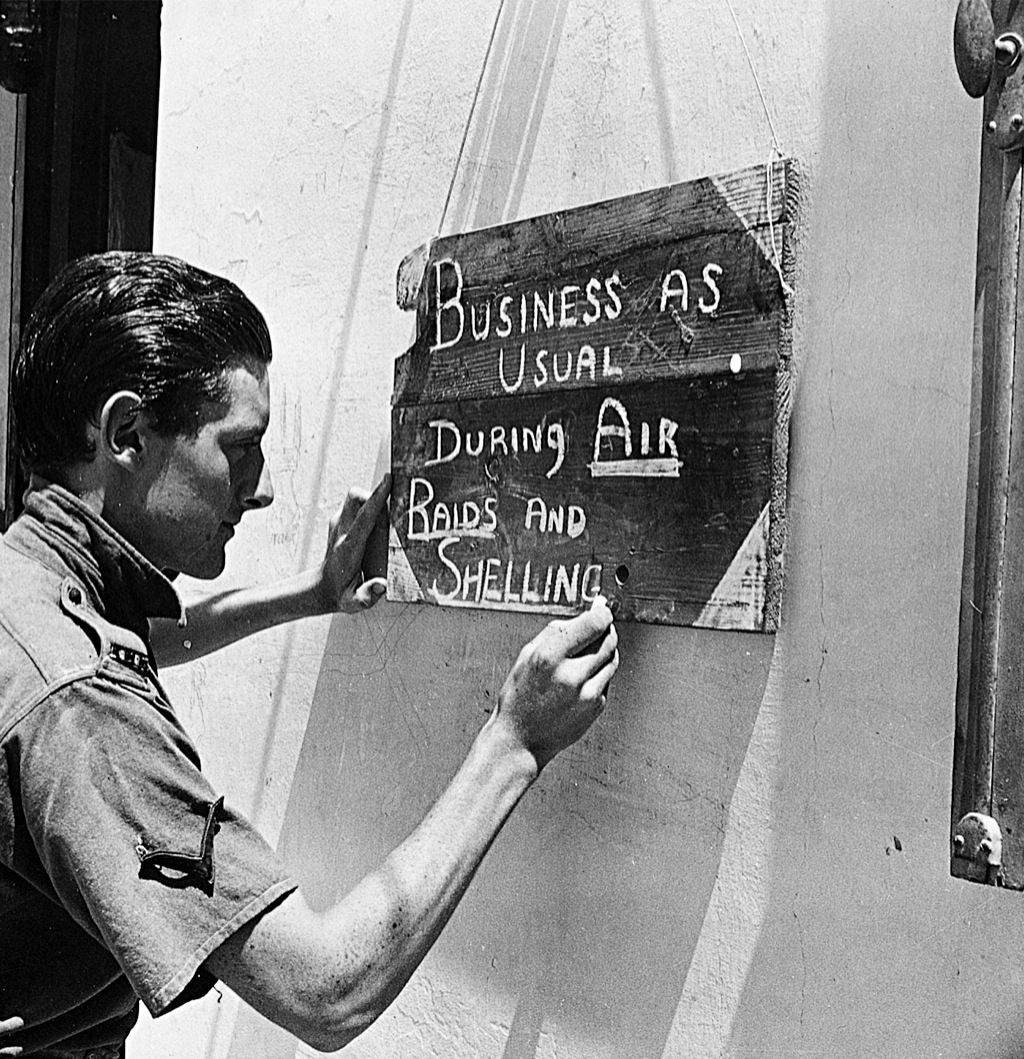 BUSINESS AS
USUAL
DURING AIR
RAIDS AND
SHELLING